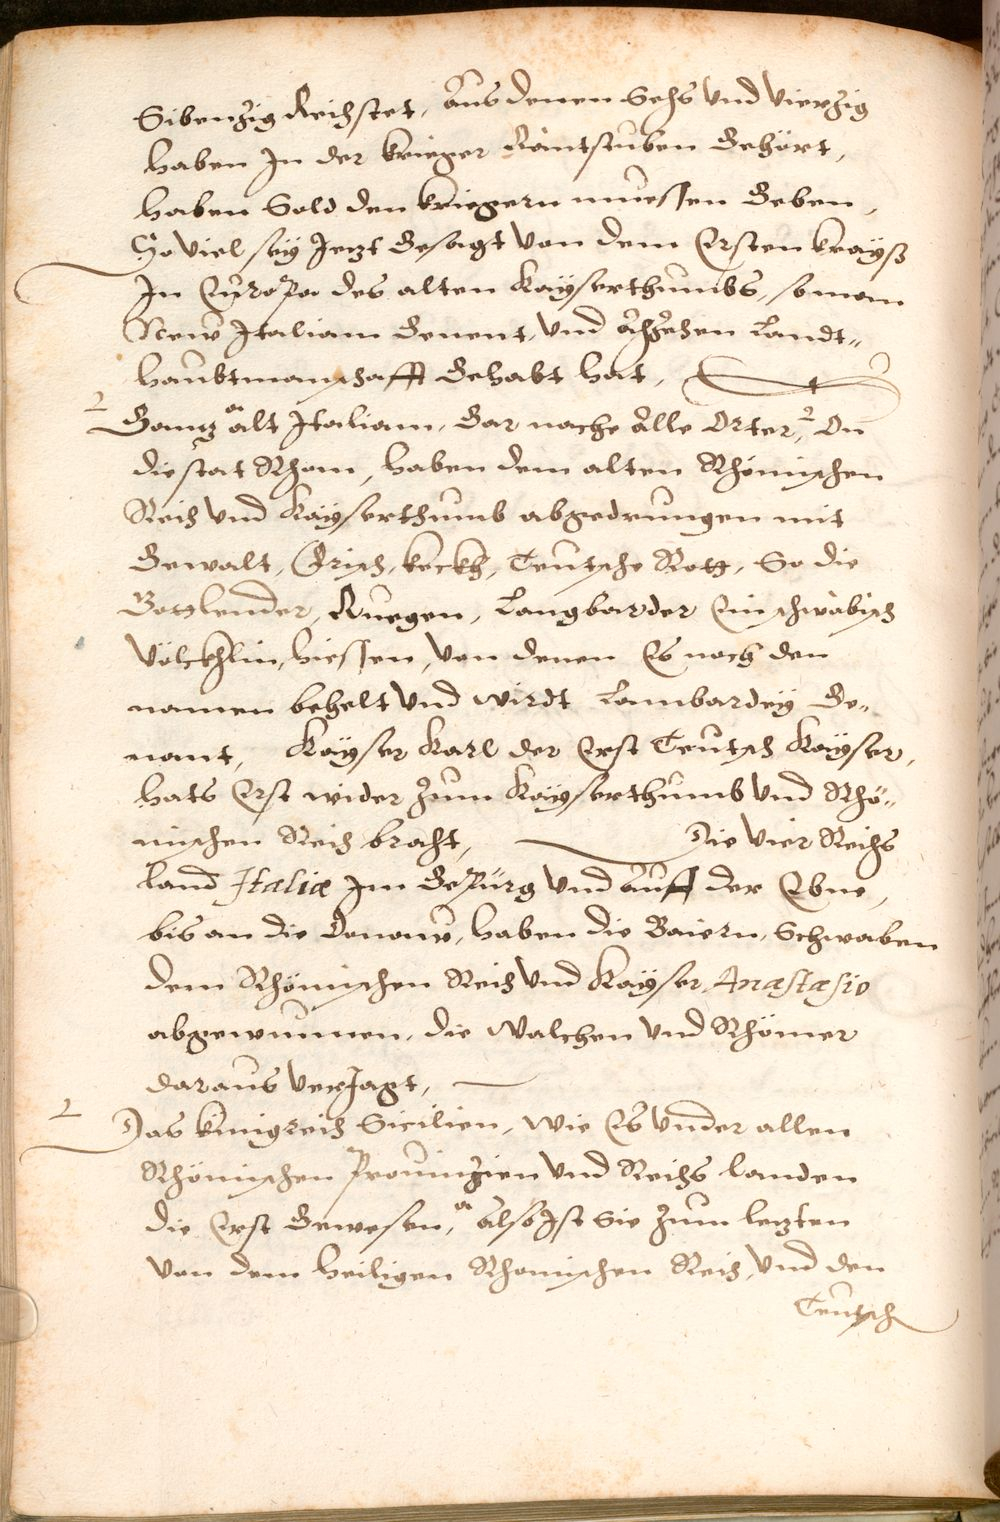 Sibenzig Reichstet, Aus denen Sechs Vnd Vierzig
haben In der krieger Raintstuben Gehört,
haben Sold den kriegern muessen Geben,
So viel sey Jezt Gesagt Von dem Ersten krayß
In EuroPa des alten Kayserthumbs, so man
New Italiam Genent, Vnd Achzehen Landt„
haubtmanschafft Gehabt hat,
Ganz alt Italiam, Gar nache Alle Orter, On
die stat Rhom, haben dem alten Rhömischen
Reich Vnd Kayserthumb abgedrungen mit
Gewalt, Frisch, keckh, Teutsche Rott, So die
Gottlender, Ruegen, Langbarder Ein schwäbisch
Völckhlin, hiessen, Von denen Es noch den
namen behelt Vnd wirdt Lambardey Ge„
nant, Kayser Karl der Erst Teutsch Kayser,
hats Erst wider Zum Kayserthumb Vnd Rhö„
mischen Reich bracht, Die Vier Reichs
Land Italiæ Im GePürg Vnd Auff der Ebne,
bis an die Donaw, haben die Baiern, Schwaben
dem Rhömischen Reich Vnd Kayser Anastasio
abgewunnen, die Walchen Vnd Rhömer
daraus VerJagt,
Das künigreich Sicilien, Wie Es Vnder allen
Rhömischen Prouinzien Vnd Reichs landen
die Erst Gewesen, Also Ist Sie Zum letzten
Von dem heiligen Rhomischen Reich, Vnd den
Teutsch